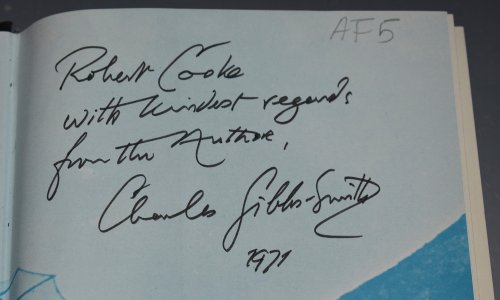 AF5
Robert Cooke
with kindest regards
from the Author,
Charles Gibbs-Smith
1971